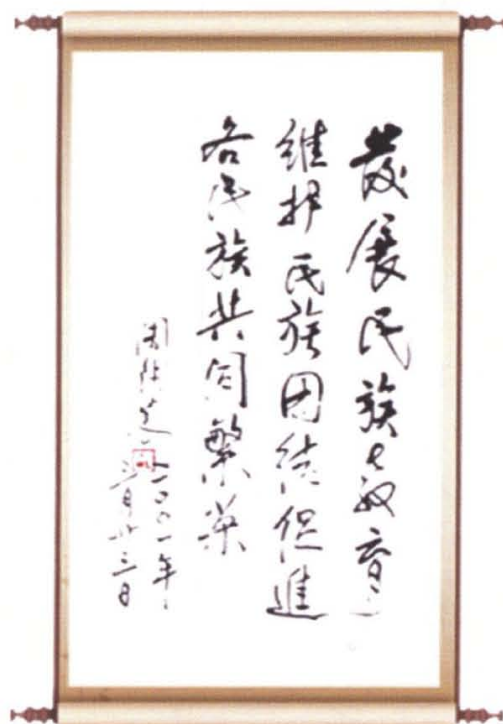 發展民族教育
维护民族团结促進
各民族共同繁荣
二〇〇一年
三日